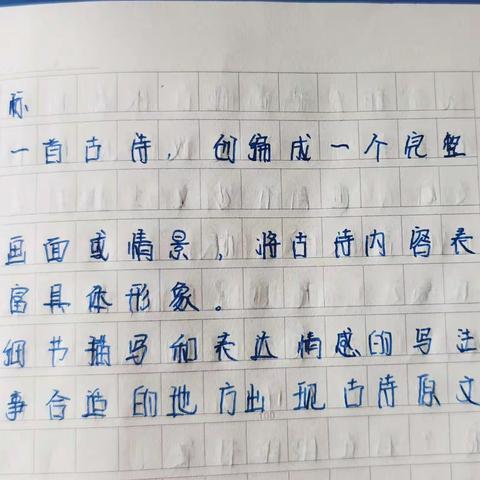 标
一首古诗，创编成一个完整
画面或情景，将古诗内容表
富具体形象。
细节描写和表达情感的写法
事合适的地方出现古诗原文
100